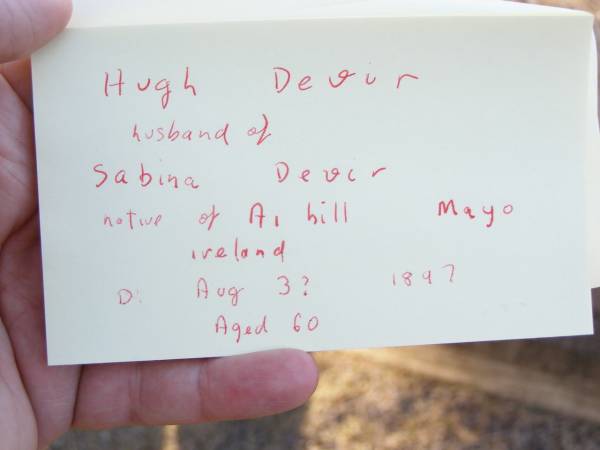 Hugh Devir
husband of
Sabina Devir
native of A, hill Mayo
ireland
D: Aug 3? 1897
Aged 60